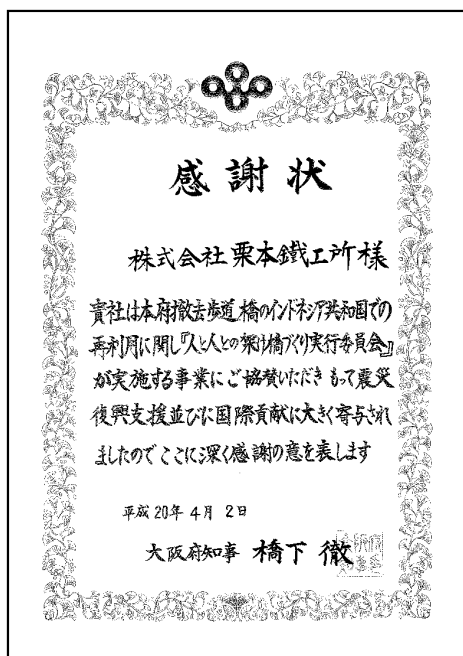 感謝状
株式会社栗本鐵工所様
貴社は本府撤去歩道橋のインドネシア共和国での
再利用に関し『人と人との架け橋づくり実行委員会』
が実施する事業にご協賛いただきもって震災
復興支援並びに国際貢献に大きく寄与され
ましたのでここに深く感謝の意を表します
平成20年4月2日
大阪府知事 橋下徹